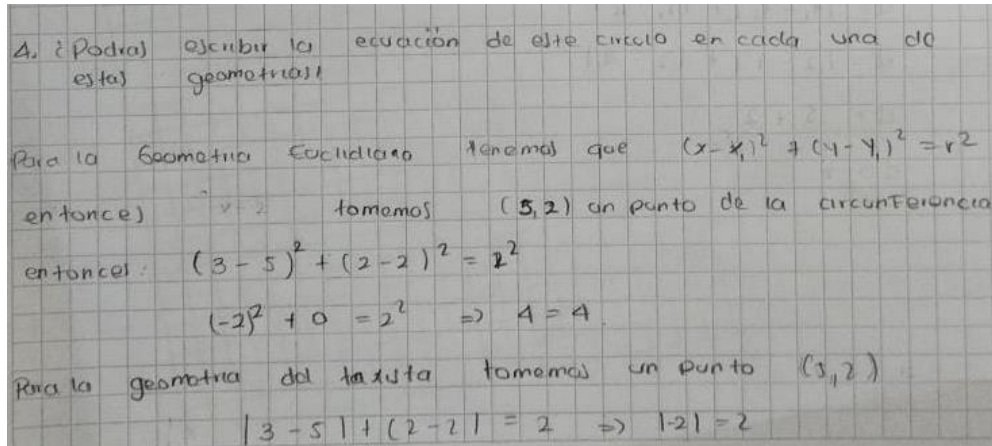 4. ¿Podras escribir la ecuación de este circulo en cada una de
estas geometrias?
Para la Geometria Euclidiana tenemos que (x-x₁)² + (y-y₁)² = r²
entonces tomemos (5,2) un punto de la circunferencia
entonces: (3-5)² + (2-2)² = 2²
(-2)² + 0 = 2² => 4 = 4.
Para la geometria del taxista tomemos un punto (5,2)
|3-5| + (2-2| = 2 => |-2| = 2